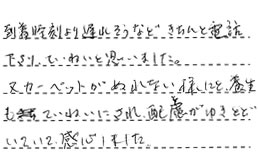 到着時刻より遅れそうなど きちんと電話
下さり、ていねいと思いました。
又カーペットがぬれない様にと、養生
もていねいにされ、配慮がゆきとど
いていて、感心しました。